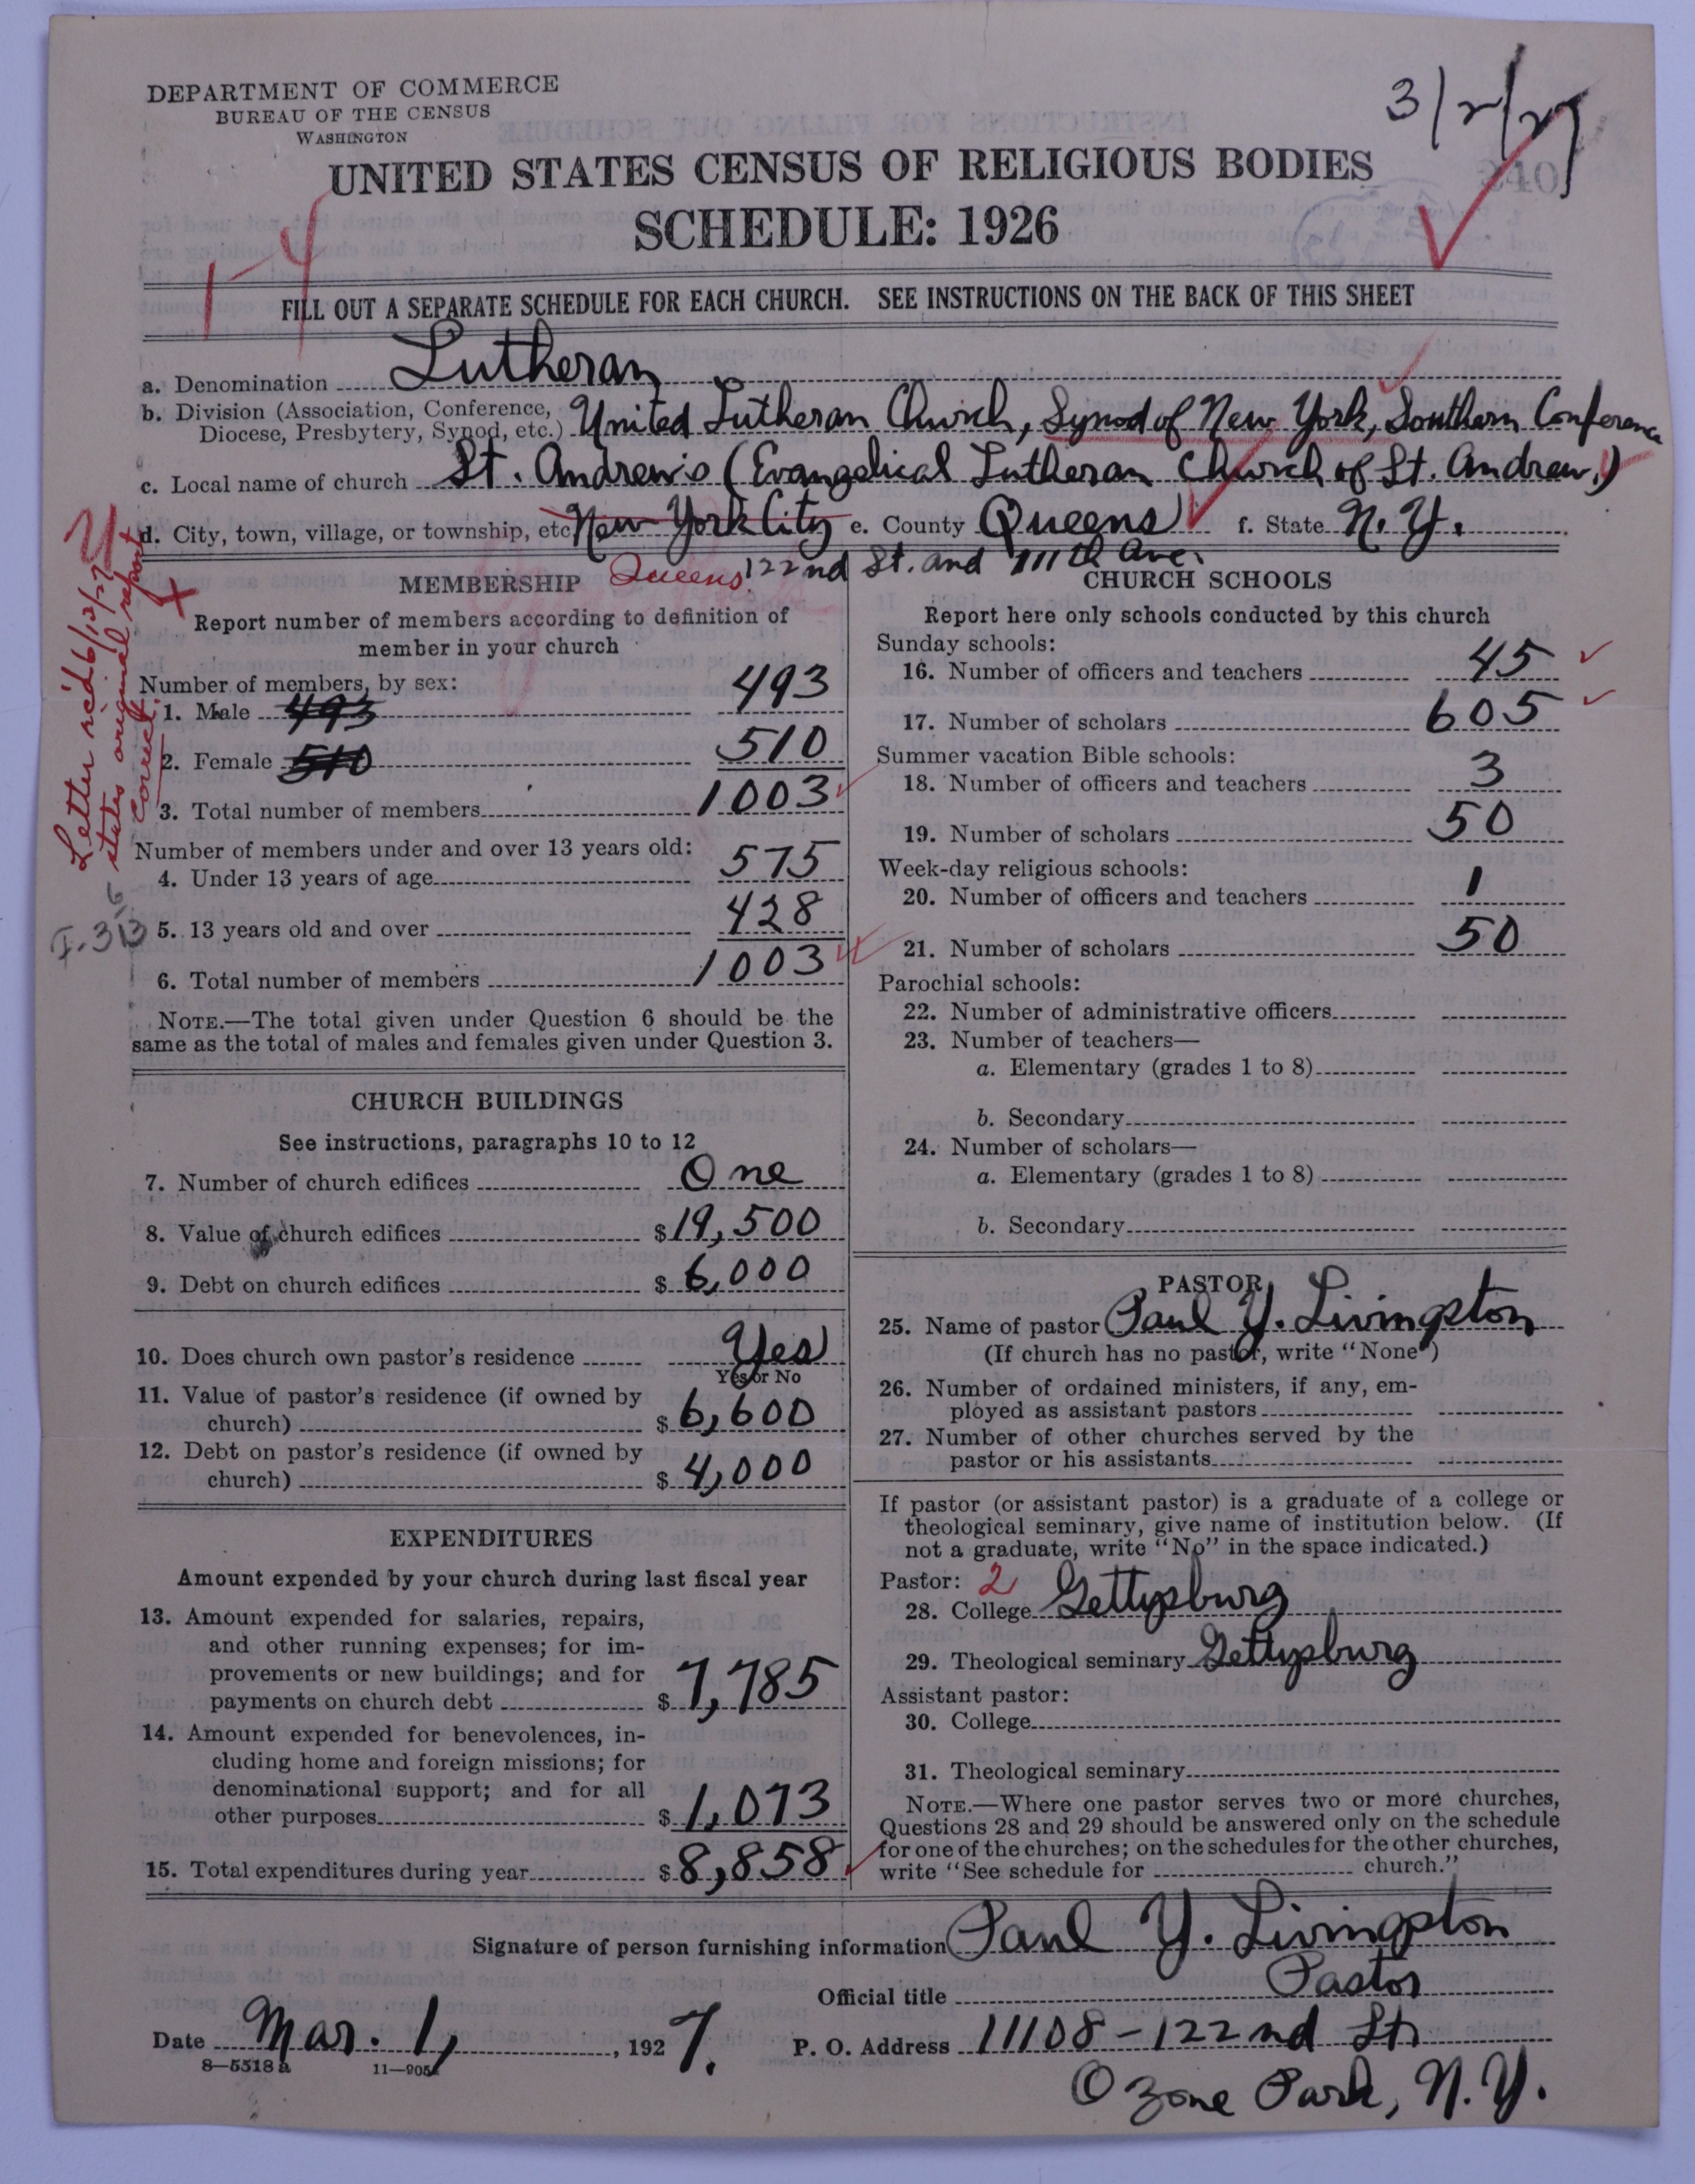 DEPARTMENT OF COMMERCE
BUREAU OF THE CENSUS
WASHINGTON
3/2/27
UNITED STATES CENSUS OF RELIGIOUS BODIES
SCHEDULE: 1926
1-4
FILL OUT A SEPARATE SCHEDULE FOR EACH CHURCH. SEE INSTRUCTIONS ON THE BACK OF THIS SHEET
a. Denomination Lutheran
b. Division (Association, Conference, Diocese, Presbytery, Synod, etc.) United Lutheran Church, Synod of New York, Southern Conference
c. Local name of church St. Andrew's (Evangelical Lutheran Church of St. Andrew.)
d. City, town, village, or township, etc. New York City e. County Queens f. State N.Y.
Queens. 122nd St. and 111th Ave.
Letter rec'd 6/13/27
states original report
correct.
MEMBERSHIP
Report number of members according to definition of
member in your church
Number of members, by sex:
1. Male 493 493
2. Female 510 510
3. Total number of members 1003
Number of members under and over 13 years old:
4. Under 13 years of age 575
5. 13 years old and over 428
6. Total number of members 1003
NOTE.—The total given under Question 6 should be the
same as the total of males and females given under Question 3.
CHURCH BUILDINGS
See instructions, paragraphs 10 to 12
7. Number of church edifices One
8. Value of church edifices $19,500
9. Debt on church edifices $6,000
10. Does church own pastor's residence Yes
Yes or No
11. Value of pastor's residence (if owned by
church) $6,600
12. Debt on pastor's residence (if owned by
church) $4,000
EXPENDITURES
Amount expended by your church during last fiscal year
13. Amount expended for salaries, repairs,
and other running expenses; for im-
provements or new buildings; and for
payments on church debt $7,785
14. Amount expended for benevolences, in-
cluding home and foreign missions; for
denominational support; and for all
other purposes $1,073
15. Total expenditures during year $8,858
CHURCH SCHOOLS
Report here only schools conducted by this church
Sunday schools:
16. Number of officers and teachers 45
17. Number of scholars 605
Summer vacation Bible schools:
18. Number of officers and teachers 3
19. Number of scholars 50
Week-day religious schools:
20. Number of officers and teachers 1
21. Number of scholars 50
Parochial schools:
22. Number of administrative officers
23. Number of teachers—
a. Elementary (grades 1 to 8)
b. Secondary
24. Number of scholars—
a. Elementary (grades 1 to 8)
b. Secondary
PASTOR
25. Name of pastor Paul Y. Livingston
(If church has no pastor, write "None")
26. Number of ordained ministers, if any, em-
ployed as assistant pastors
27. Number of other churches served by the
pastor or his assistants
If pastor (or assistant pastor) is a graduate of a college or
theological seminary, give name of institution below. (If
not a graduate, write "No" in the space indicated.)
Pastor: 2
28. College Gettysburg
29. Theological seminary Gettysburg
Assistant pastor:
30. College
31. Theological seminary
NOTE.—Where one pastor serves two or more churches,
Questions 28 and 29 should be answered only on the schedule
for one of the churches; on the schedules for the other churches,
write "See schedule for church."
Signature of person furnishing information Paul Y. Livingston
Official title Pastor
Date Mar. 1, 1927. P. O. Address 11108-122nd St.
8—5518a 11—905
Ozone Park, N.Y.